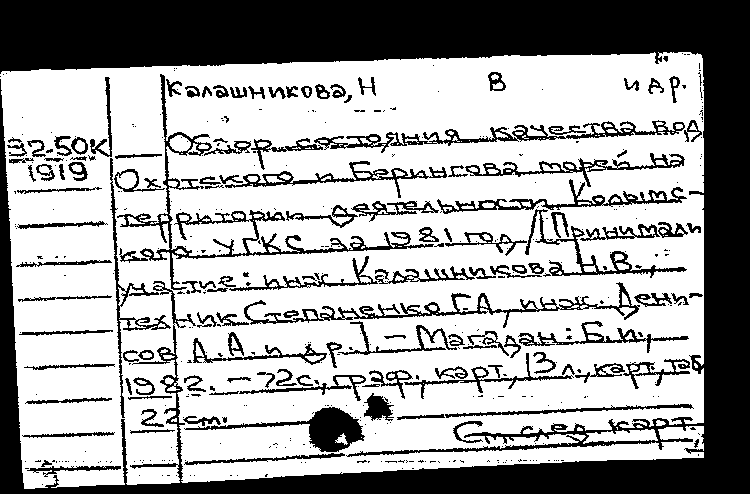 Калашникова, Н В и др.
92-50К Обзор состояния качества вод
1919 Охотского и Берингова морей на
территории деятельности Колымс-
кого УГКС за 1981 год / [Принимали
участие: инж. Калашникова Н.В.,
техник Степаненко Г.А., инж. Дени-
сов А.А. и др.]. - Магадан: Б.и.,
1982. - 72с., граф., карт., 13 л., карт, таб
22 см.
См. след. карт.